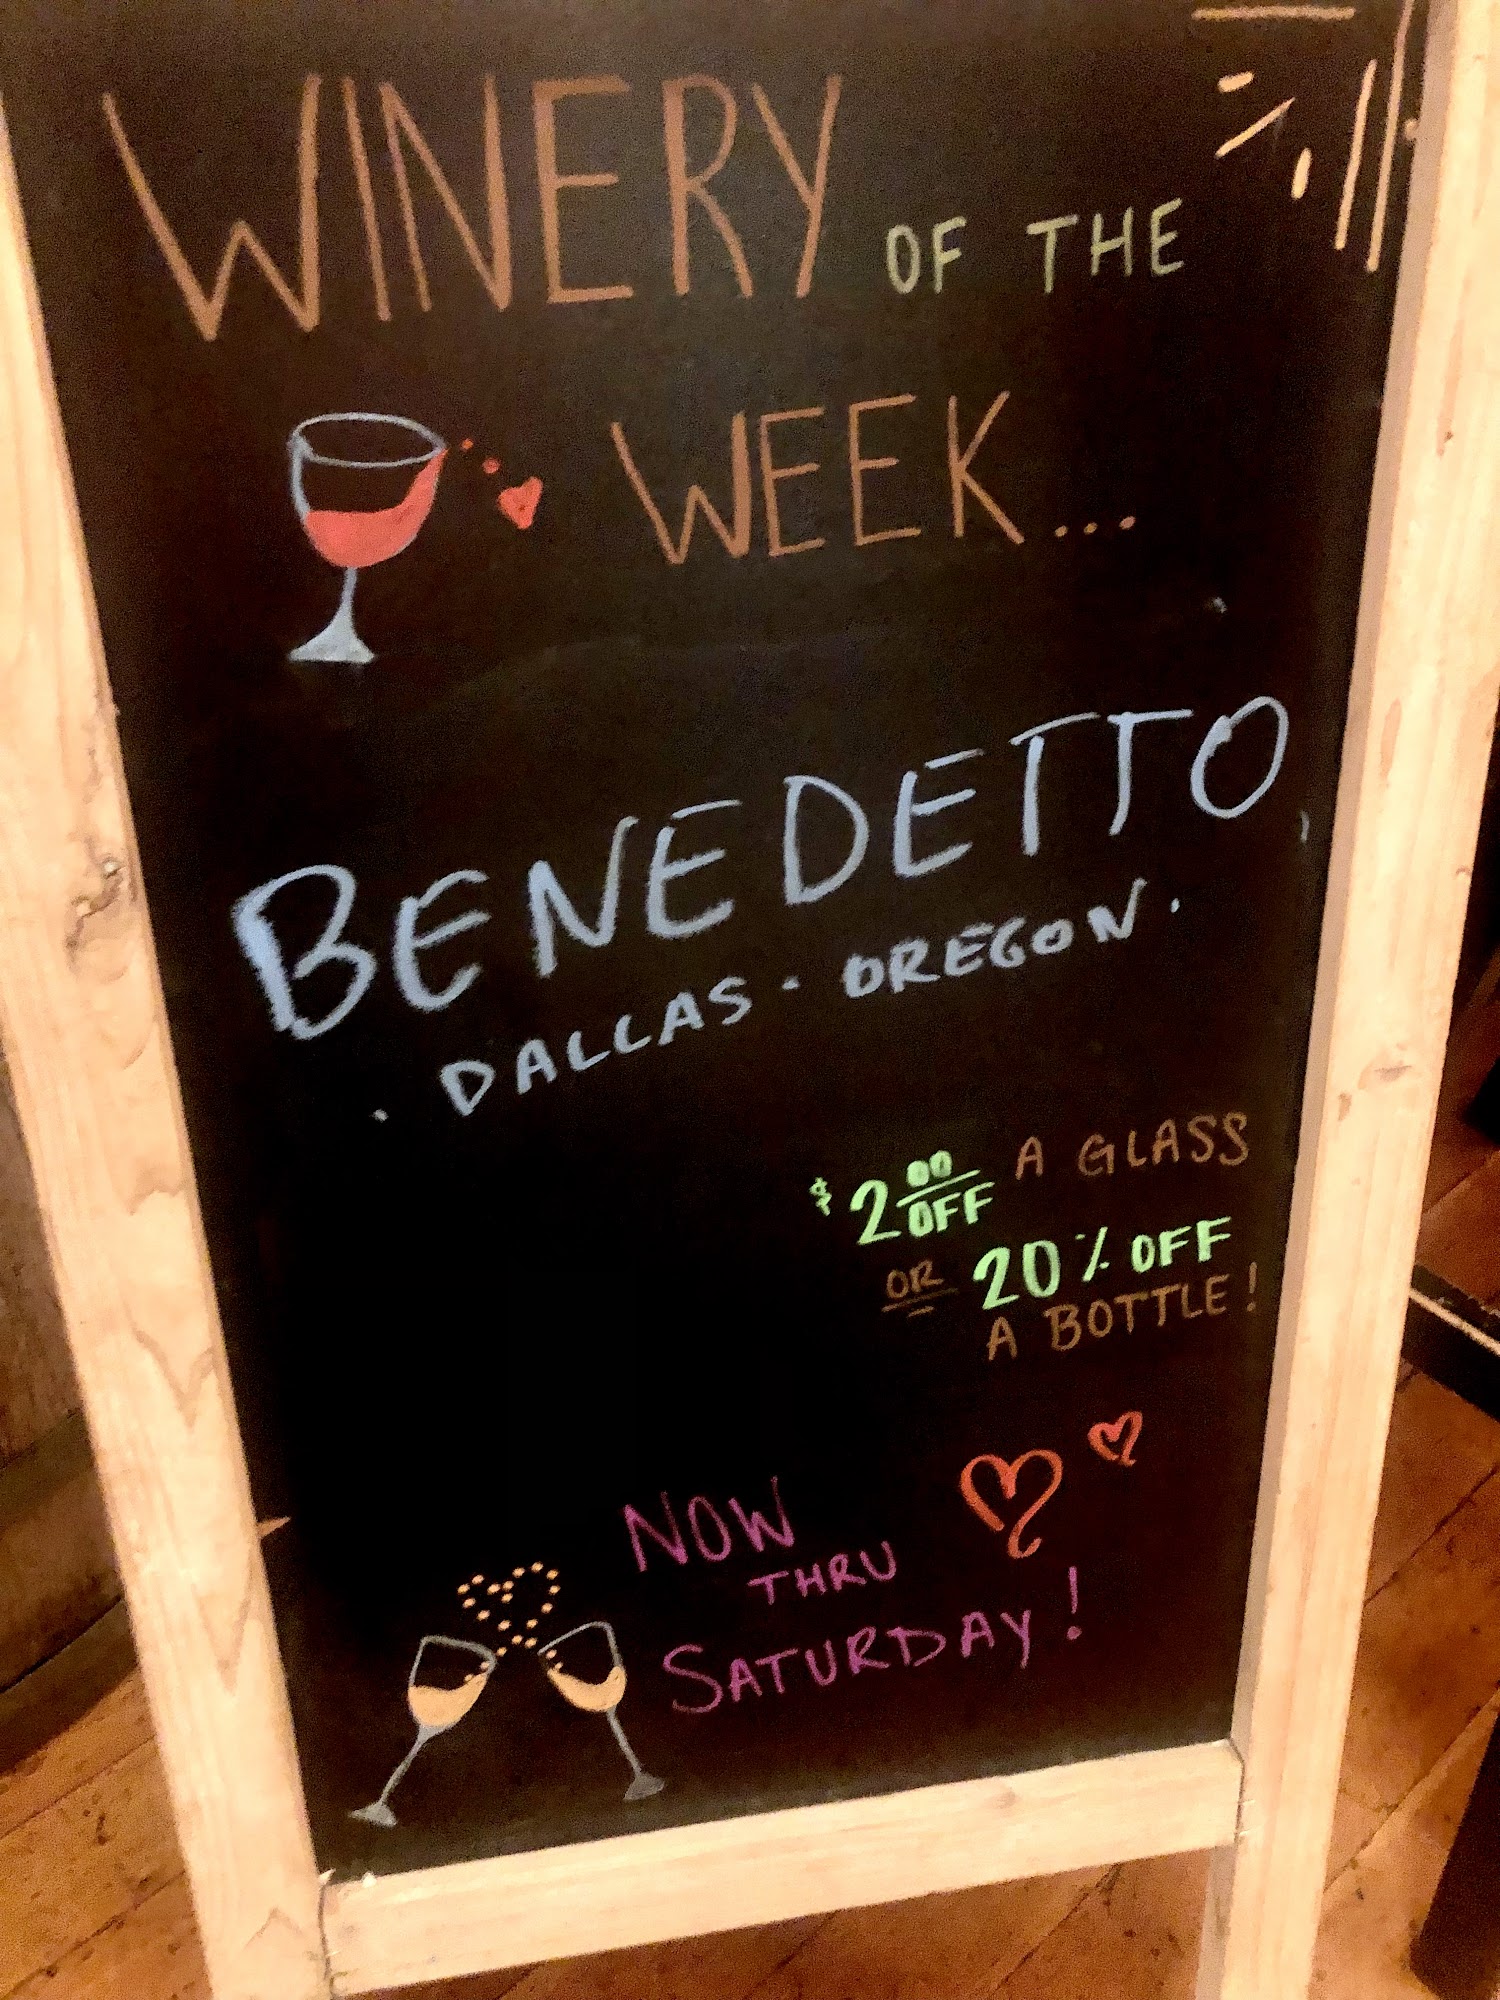 WINERY OF THE
WEEK...
BENEDETTO
· DALLAS · OREGON ·
$2.00 OFF A GLASS
OR 20% OFF
A BOTTLE!
NOW
THRU
SATURDAY!